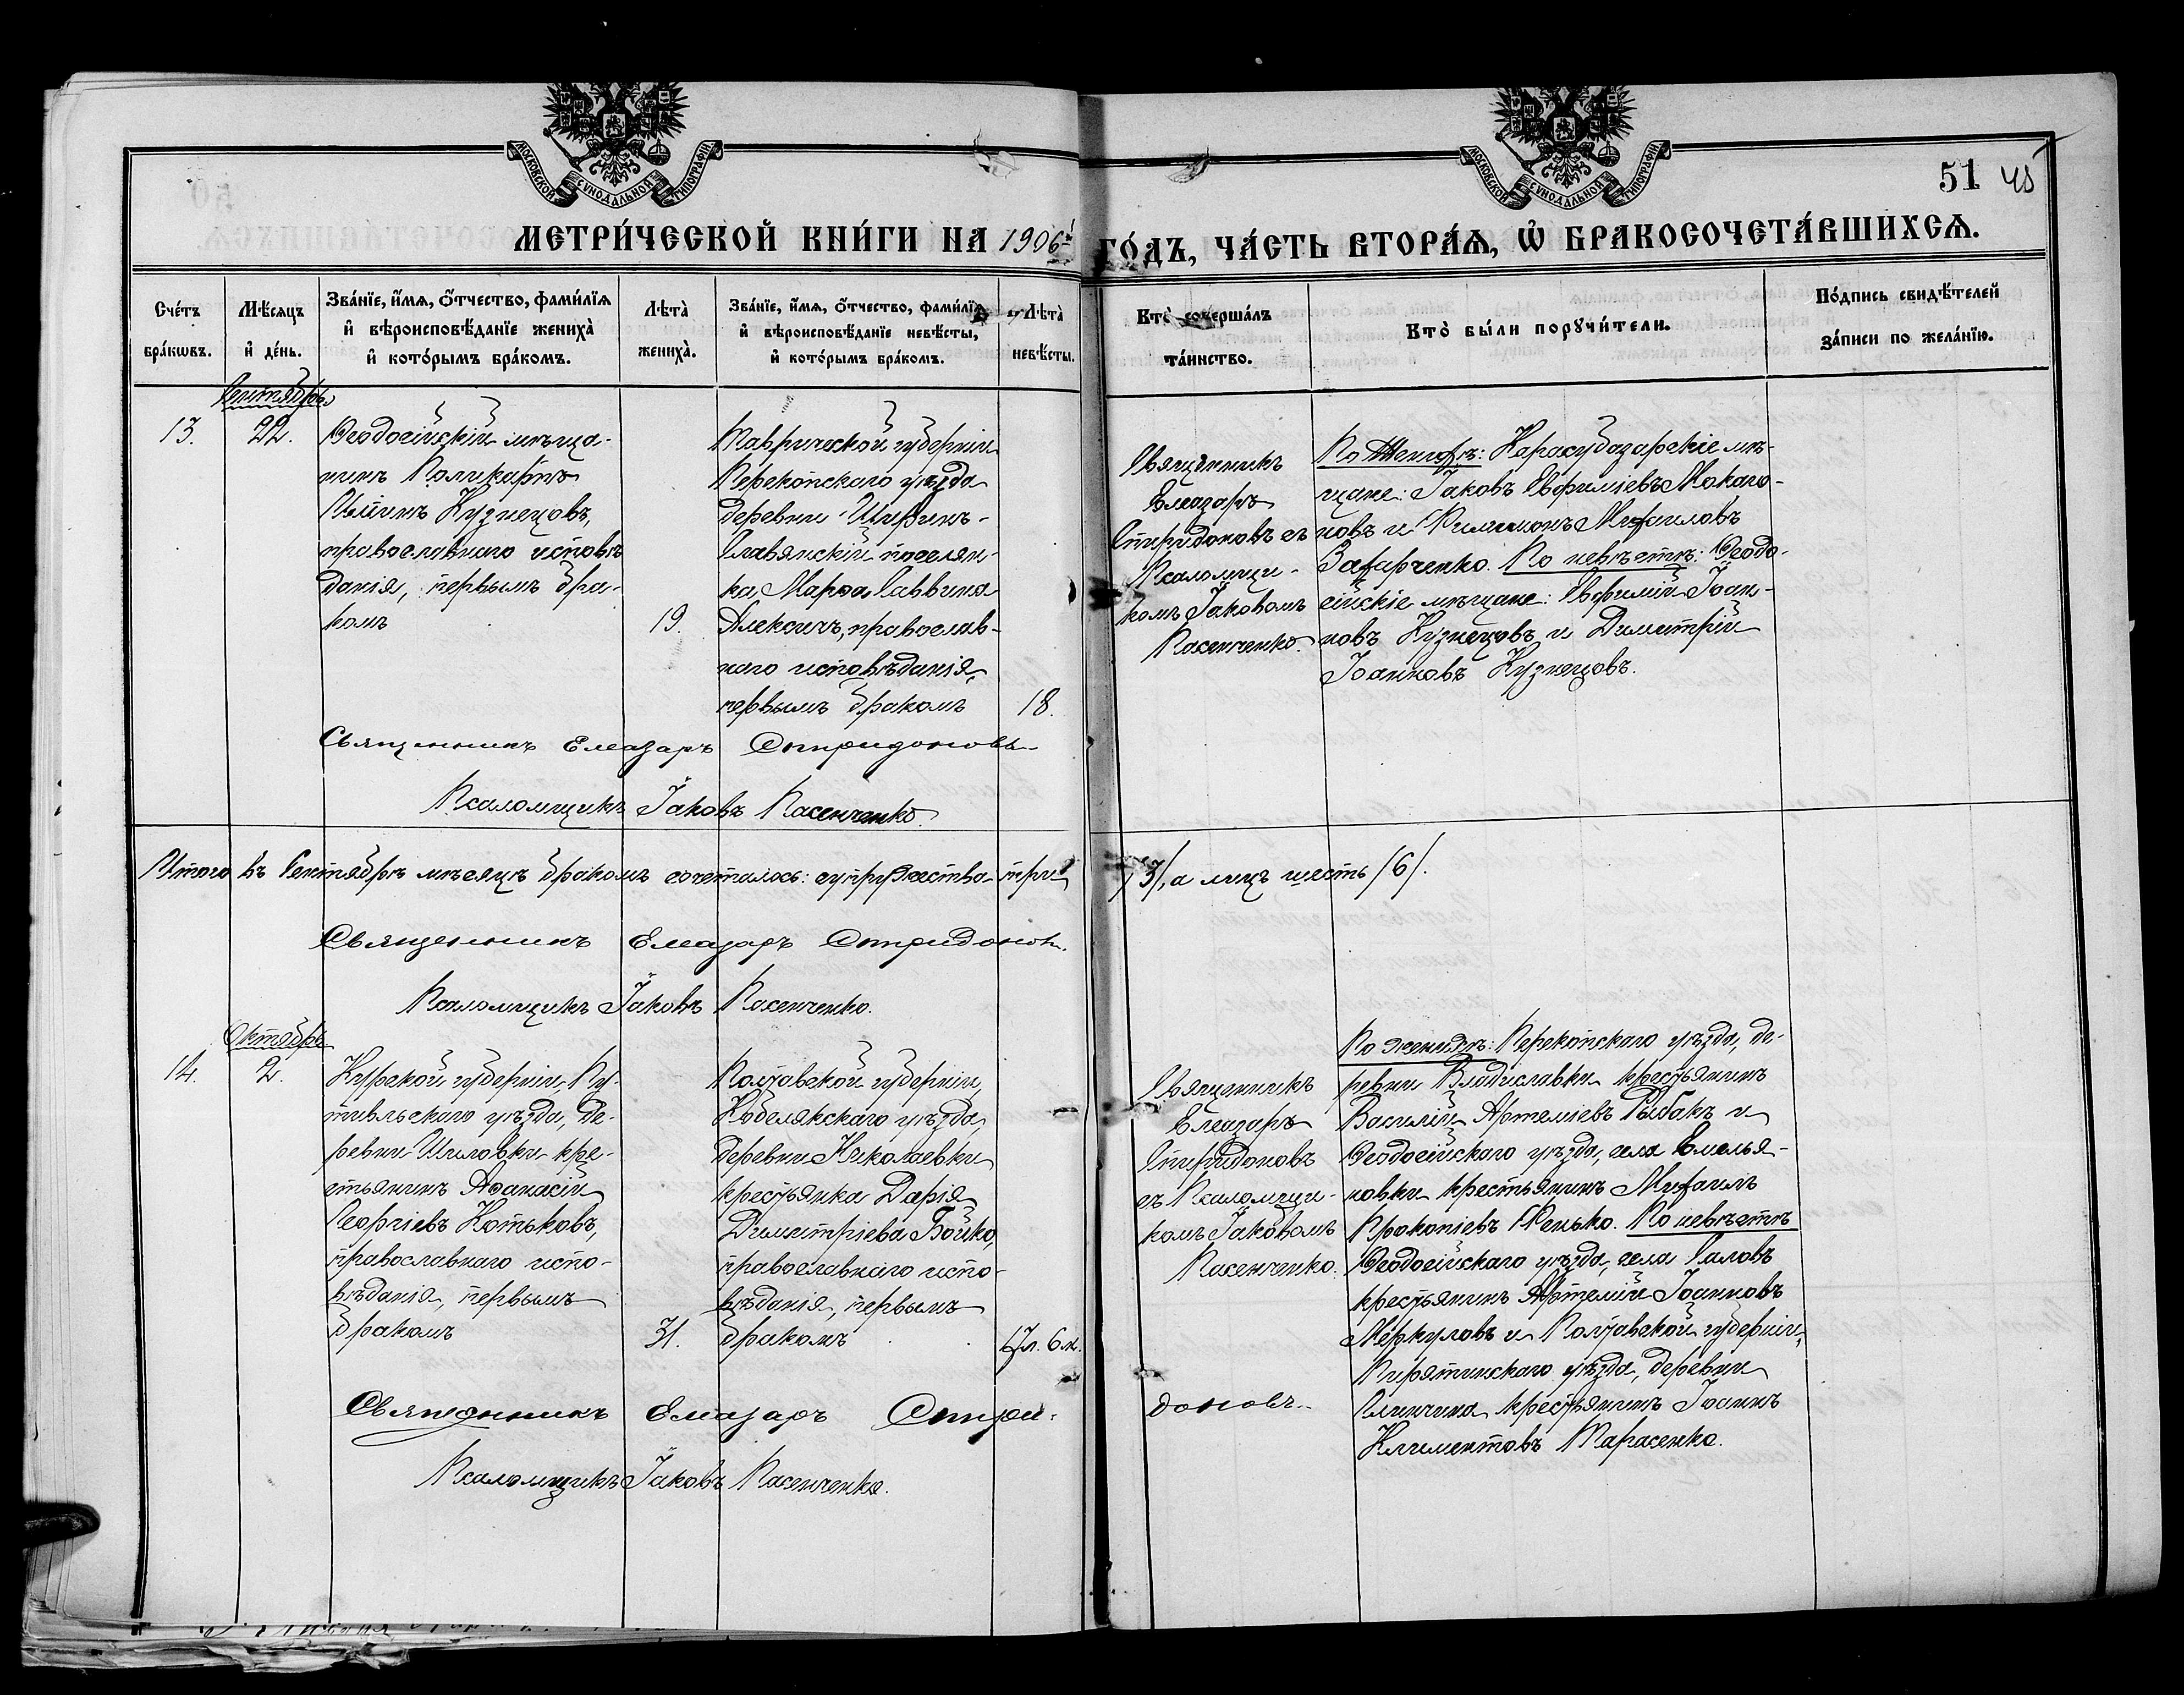 МОСКОВСКОЙ СѴНОДАЛЬНОЙ ТИПОГРАФІИ
МОСКОВСКОЙ СѴНОДАЛЬНОЙ ТИПОГРАФІИ
51 45
МЕТРИ́ЧЕСКОЙ КНИ́ГИ НА 1906й ГО́ДЪ, ЧА́СТЬ ВТОРА́Ѧ, Ѽ БРАКОСОЧЕТА́ВШИХСѦ.
Сче́тъ
бра́кѡвъ.
Мѣ́сяцъ
и҆ де́нь.
Зва́нїе, и҆́мѧ, ѻ҆́тчество, фами́лїѧ
и҆ вѣроисповѣ́данїе жениха̀
и҆ кото́рымъ бра́комъ.
Лѣта̀
жениха̀.
Зва́нїе, и҆́мѧ, ѻ҆́тчество, фами́лїѧ
и҆ вѣроисповѣ́данїе невѣ́сты,
и҆ кото́рымъ бра́комъ.
Лѣта̀
невѣ́сты.
Кто̀ соверша́лъ
та́инство.
Кто̀ бы́ли порꙋчи́тели.
По́дпись свидѣ́телей
за́писи по жела́нїю.
Сентябрь
13.
22.
Ѳеодосійскій мѣща-
нинъ Поликарпъ
Ильинъ Кузнецовъ,
православнаго исповѣ
данія, первымъ бра-
комъ
19.
Таврической губерніи
Перекопскаго уѣзда
деревни
Славянскій поселян-
ка Марѳа Саввина
Алексичъ, православ-
наго исповѣданія,
первымъ бракомъ
18.
Священникъ
Елеазаръ
Спиридоновъ съ
Псаломщи-
комъ Іаковомъ
Пасенченко.
По Женихѣ: Карасубазарскіе мѣ-
щане: Іаковъ Евфиміевъ Макаго-
новъ и Филимонъ Михаиловъ
Захарченко. По невѣстѣ: Ѳеодо-
сійскіе мѣщане: Евфимій Іоан-
новъ Кузнецовъ и Димитрій
Іоанновъ Кузнецовъ.
Священникъ Елеазаръ Спиридоновъ
Псаломщикъ Іаковъ Пасенченко.
Итого въ Сентябрѣ мѣсяцѣ бракомъ сочеталось: супружества три /3/, а лицъ шесть /6/.
Священникъ Елеазаръ Спиридоновъ.
Псаломщикъ Іаковъ Пасенченко.
Октябрь
14.
2.
Курской губерніи, Пу-
тивльскаго уѣзда, де-
ревни Шиловки кре-
стьянинъ Аѳанасій
Георгіевъ Котьковъ,
православнаго испо-
вѣданія, первымъ
бракомъ
31.
Полтавской губерніи,
Кобелякскаго уѣзда,
деревни Николаевки
крестьянка Дарія
Димитріева Бойко,
православнаго испо-
вѣданія, первымъ
бракомъ
17л. 6м.
Священникъ
Елеазаръ
Спиридоновъ
съ Псаломщи-
комъ Іаковомъ
Пасенченко.
По женихѣ: Перекопскаго уѣзда, де-
ревни Владиславки крестьянинъ
Василій Артеміевъ Рыбакъ и
Ѳеодосійскаго уѣзда, села Емелья-
новки крестьянинъ Михаилъ
Прокопіевъ Фенько. По невѣстѣ
Ѳеодосійскаго уѣзда, села Саловъ
крестьянинъ Артемій Іоанновъ
Меркуловъ и Полтавской губерніи,
Пирятинскаго уѣзда, деревни
крестьянинъ Іоаннъ
Климентовъ Тарасенко.
Священникъ Елеазаръ Спиридоновъ.
Псаломщикъ Іаковъ Пасенченко.